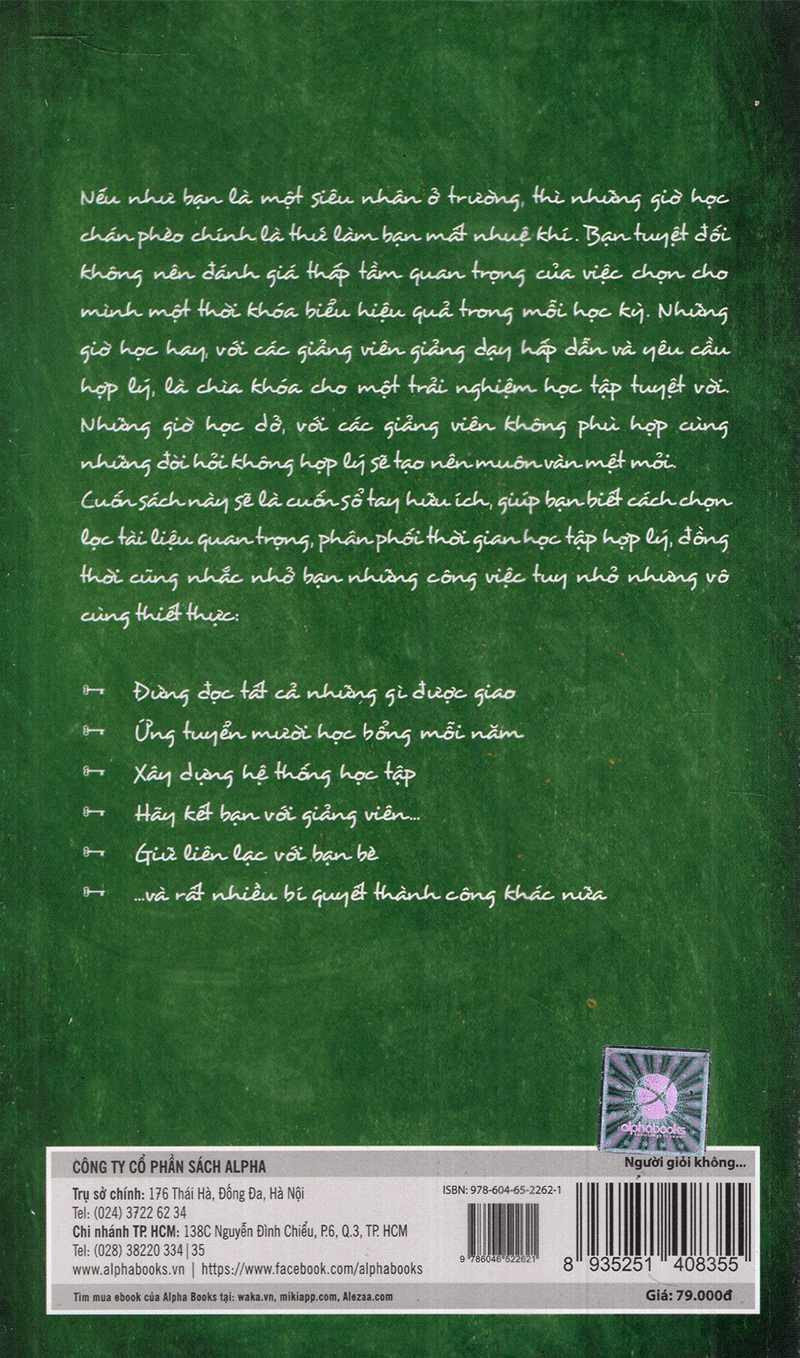 Nếu như bạn là một siêu nhân ở trường, thì những giờ học
chán phèo chính là thứ làm bạn mất nhuệ khí. Bạn tuyệt đối
không nên đánh giá thấp tầm quan trọng của việc chọn cho
mình một thời khóa biểu hiệu quả trong mỗi học kỳ. Những
giờ học hay, với các giảng viên giảng dạy hấp dẫn và yêu cầu
hợp lý, là chìa khóa cho một trải nghiệm học tập tuyệt vời.
Những giờ học dở, với các giảng viên không phù hợp cùng
những đòi hỏi không hợp lý sẽ tạo nên muôn vàn mệt mỏi.
Cuốn sách này sẽ là cuốn sổ tay hữu ích, giúp bạn biết cách chọn
lọc tài liệu quan trọng, phân phối thời gian học tập hợp lý, đồng
thời cũng nhắc nhở bạn những công việc tuy nhỏ nhưng vô
cùng thiết thực:
Đừng đọc tất cả những gì được giao
Ứng tuyển mười học bổng mỗi năm
Xây dựng hệ thống học tập
Hãy kết bạn với giảng viên...
Giữ liên lạc với bạn bè
...và rất nhiều bí quyết thành công khác nữa
alphabooks
CÔNG TY CỔ PHẦN SÁCH ALPHA
Người giỏi không...
Trụ sở chính: 176 Thái Hà, Đống Đa, Hà Nội
Tel: (024) 3722 62 34
Chi nhánh TP. HCM: 138C Nguyễn Đình Chiểu, P.6, Q.3, TP. HCM
Tel: (028) 38220 334 | 35
www.alphabooks.vn | https://www.facebook.com/alphabooks
ISBN: 978-604-65-2262-1
9 786046 522621
8 935251 408355
Tìm mua ebook của Alpha Books tại: waka.vn, mikiapp.com, Alezaa.com
Giá: 79.000đ